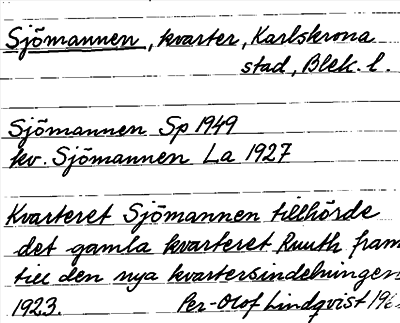 Sjömannen, kvarter, Karlskrona
stad, Blek. l.
Sjömannen Sp 1949
kv. Sjömannen La 1927
Kvarteret Sjömannen tillhörde
det gamla kvarteret Ruuth fram
till den nya kvartersindelningen
1923. Per-Olof Lindqvist